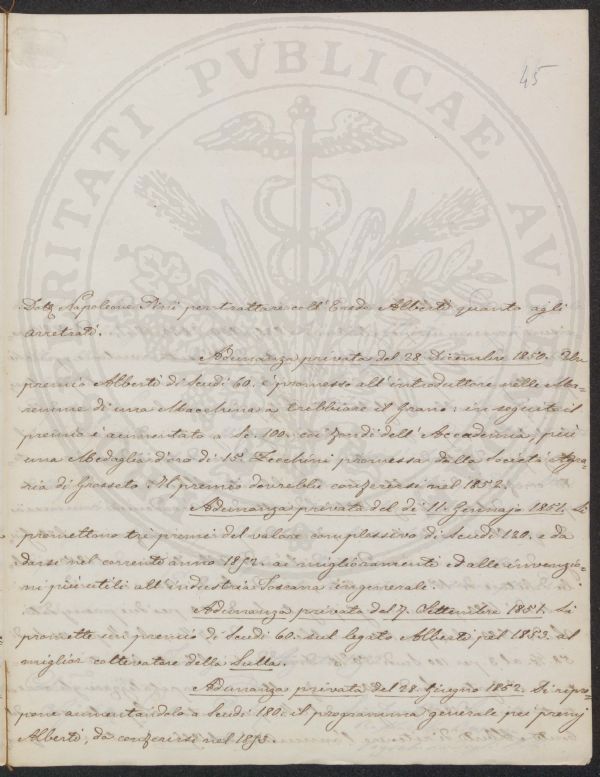 PROSPERITATI PVBLICAE AVGENDAE
45
Dott. Napoleone Pini per trattare coll' Erede Alberti quanto agli
arretrati.
Adunanza privata del 28. Dicembre 1850. Un
premio Alberti di Scudi 60. è promesso all' introduttore nelle Ma-
remme di una Macchina a trebbiare il Grano: in seguito il
premio è aumentato a Sc. 100. coi fondi dell' Accademia, più
una Medaglia d'oro di 15. Zecchini promessa dalla Società Agra-
ria di Grosseto. Il premio dovrebbe conferirsi nel 1852.
Adunanza privata del dì 11. Gennajo 1851. Si
promettono tre premi del valore complessivo di Scudi 180. e da
darsi nel corrente anno 1852. ai miglioramenti ed alle invenzio-
ni più utili all' industria Toscana in generale.
Adunanza privata del 7. Settembre 1851. Si
promette un premio di Scudi 60. sul legato Alberti pel 1853. al
miglior coltivatore della Sulla.
Adunanza privata del 28. Giugno 1852. Si ripro-
pone aumentandolo a Scudi 180. il programma generale pei premj
Alberti, da conferirsi nel 1853.